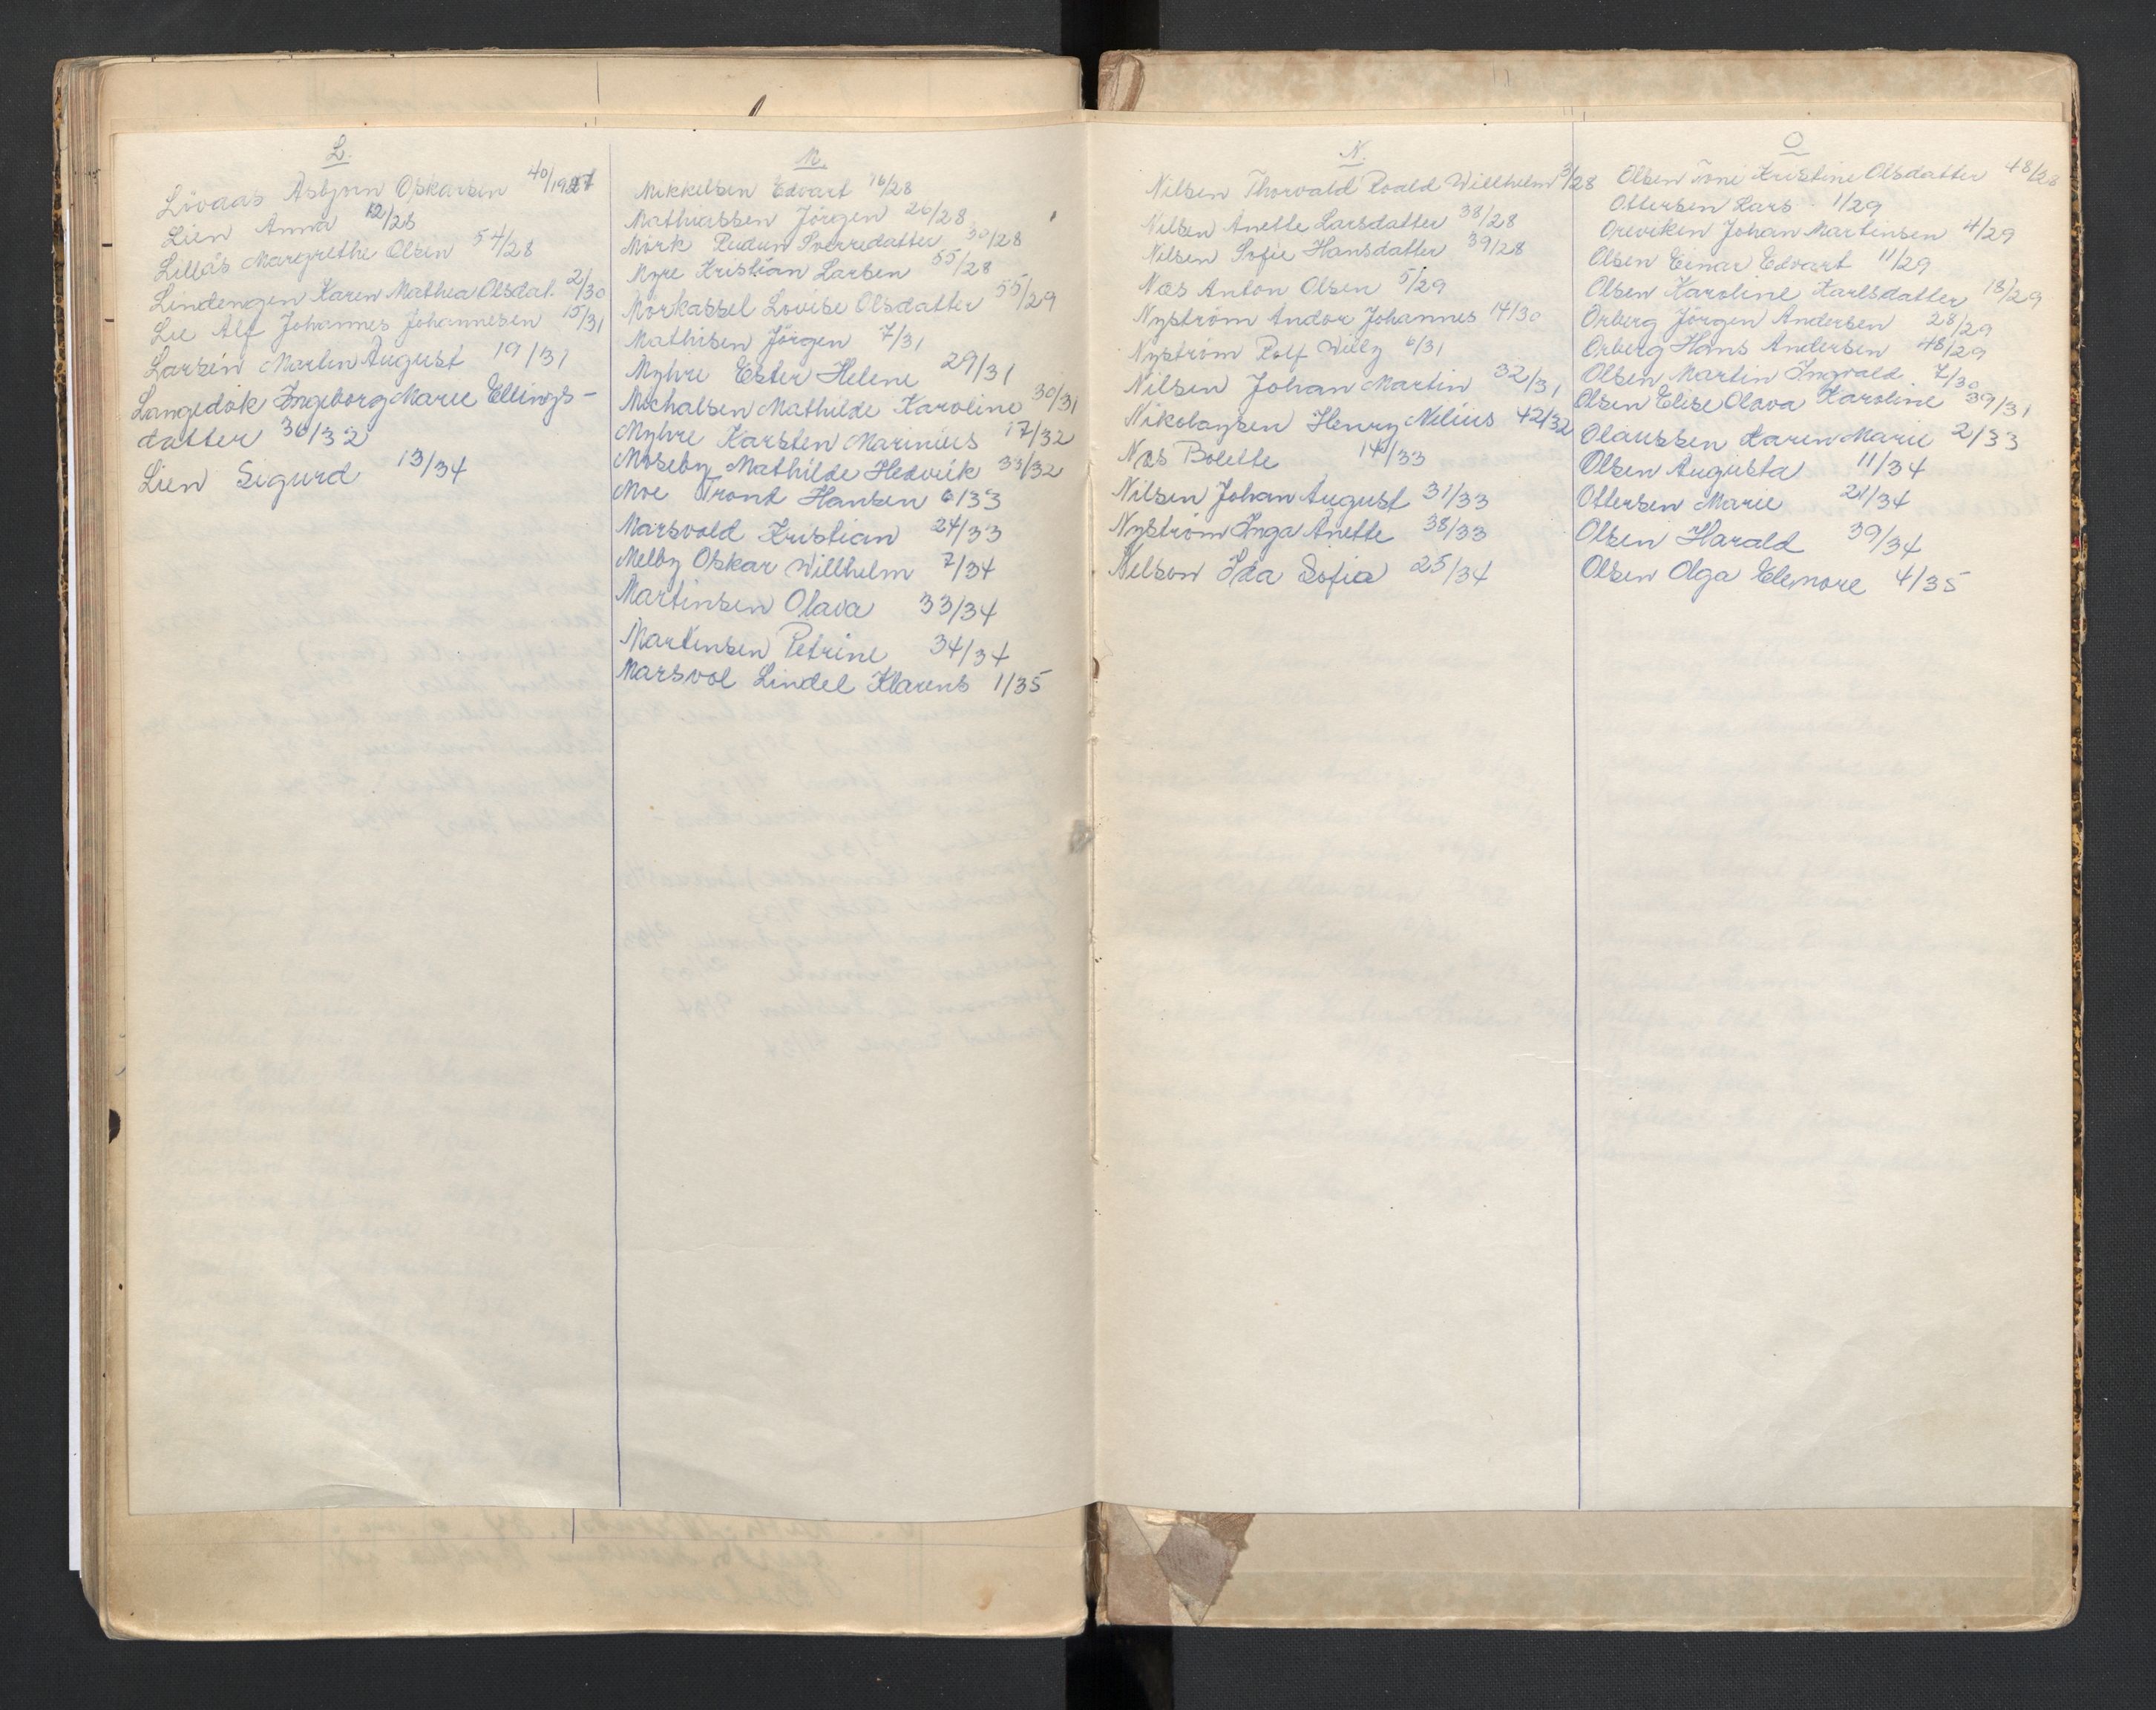 L.
Lövaas Asbjørn Oskarsen 40/1927
Lien Anna 12/28
Lillås Margrethe Olsen 54/28
Lindengen Karen Mathea Olsdat. 2/30
Lie Alf Johannes Johannesen 15/31
Larsen Martin August 19/31
Langedok Ingeborg Marie Ellings-
datter 36/32
Lien Sigurd 13/34
M.
Mikkelsen Edvart 16/28
Mathiassen Jörgen 26/28
Mörk Reidun Sverredatter 30/28
Myre Kristian Larsen 55/28
Mörkassel Lovise Olsdatter 55/29
Mathisen Jörgen 7/31
Myhre Ester Helene 29/31
Michalsen Mathilde Karoline 30/31
Myhre Karsten Marinius 17/32
Moseby Mathilde Hedvik 33/32
Moe Tront Hansen 6/33
Marsvold Kristian 24/33
Melby Oskar Willhelm 7/34
Martinsen Olava 33/34
Martinsen Petrine 34/34
Marsvol Lindel Klarens 1/35
N.
Nilsen Thorvald Roald Willhelm 3/28
Nilsen Anette Larsdatter 38/28
Nilsen Sofie Hansdatter 39/28
Næs Anton Olsen 5/29
Nyström Andor Johannes 14/30
Nyström Rolf Willy 6/31
Nilsen Johan Martin 32/31
Nikolaysen Henry Nilius 42/32
Næs Bolette /33
Nilsen Johan August 31/33
Nyström Inga Anette 38/33
Nelson Ida Sofia 25/34
O
Olsen Tone Kristine Olsdatter 48/28
Ottersen Lars 1/29
Oreviken Johan Martinsen 4/29
Olsen Einar Edvart 11/29
Olsen Karoline Karlsdatter 18/29
Orberg Jörgen Andersen 28/29
Orberg Hans Andersen 48/29
Olsen Martin Ingvald 7/30
Olsen Elise Olava Karoline 39/31
Olaussen Karen Marie 2/33
Olsen Augusta 11/34
Ottersen Marie 21/34
Olsen Harald 39/34
Olsen Olga Elenore 4/35